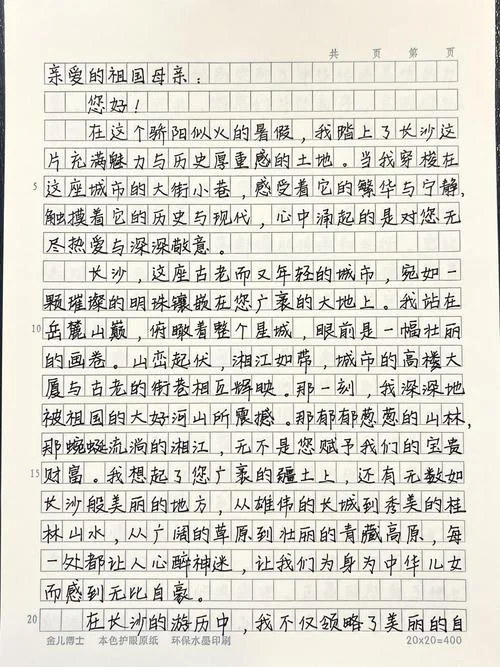 共 页 第 页
亲爱的祖国母亲：
您好！
在这个骄阳似火的暑假，我踏上了长沙这
片充满魅力与历史厚重感的土地。当我穿梭在
5 这座城市的大街小巷，感受着它的繁华与宁静，
触摸着它的历史与现代，心中涌起的是对您无
尽热爱与深深敬意。
长沙，这座古老而又年轻的城市，宛如一
颗璀璨的明珠镶嵌在您广袤的大地上。我站在
10 岳麓山巅，俯瞰着整个星城，眼前是一幅壮丽
的画卷。山峦起伏，湘江如带，城市的高楼大
厦与古老的街巷相互辉映。那一刻，我深深地
被祖国的大好河山所震撼。那郁郁葱葱的山林，
那蜿蜒流淌的湘江，无不是您赋予我们的宝贵
15 财富。我想起了您广袤的疆土上，还有无数如
长沙般美丽的地方，从雄伟的长城到秀美的桂
林山水，从广阔的草原到壮丽的青藏高原，每
一处都让人心醉神迷，让我们为身为中华儿女
而感到无比自豪。
20 在长沙的游历中，我不仅领略了美丽的自
金儿博士 本色护眼原纸 环保水墨印刷 20×20=400